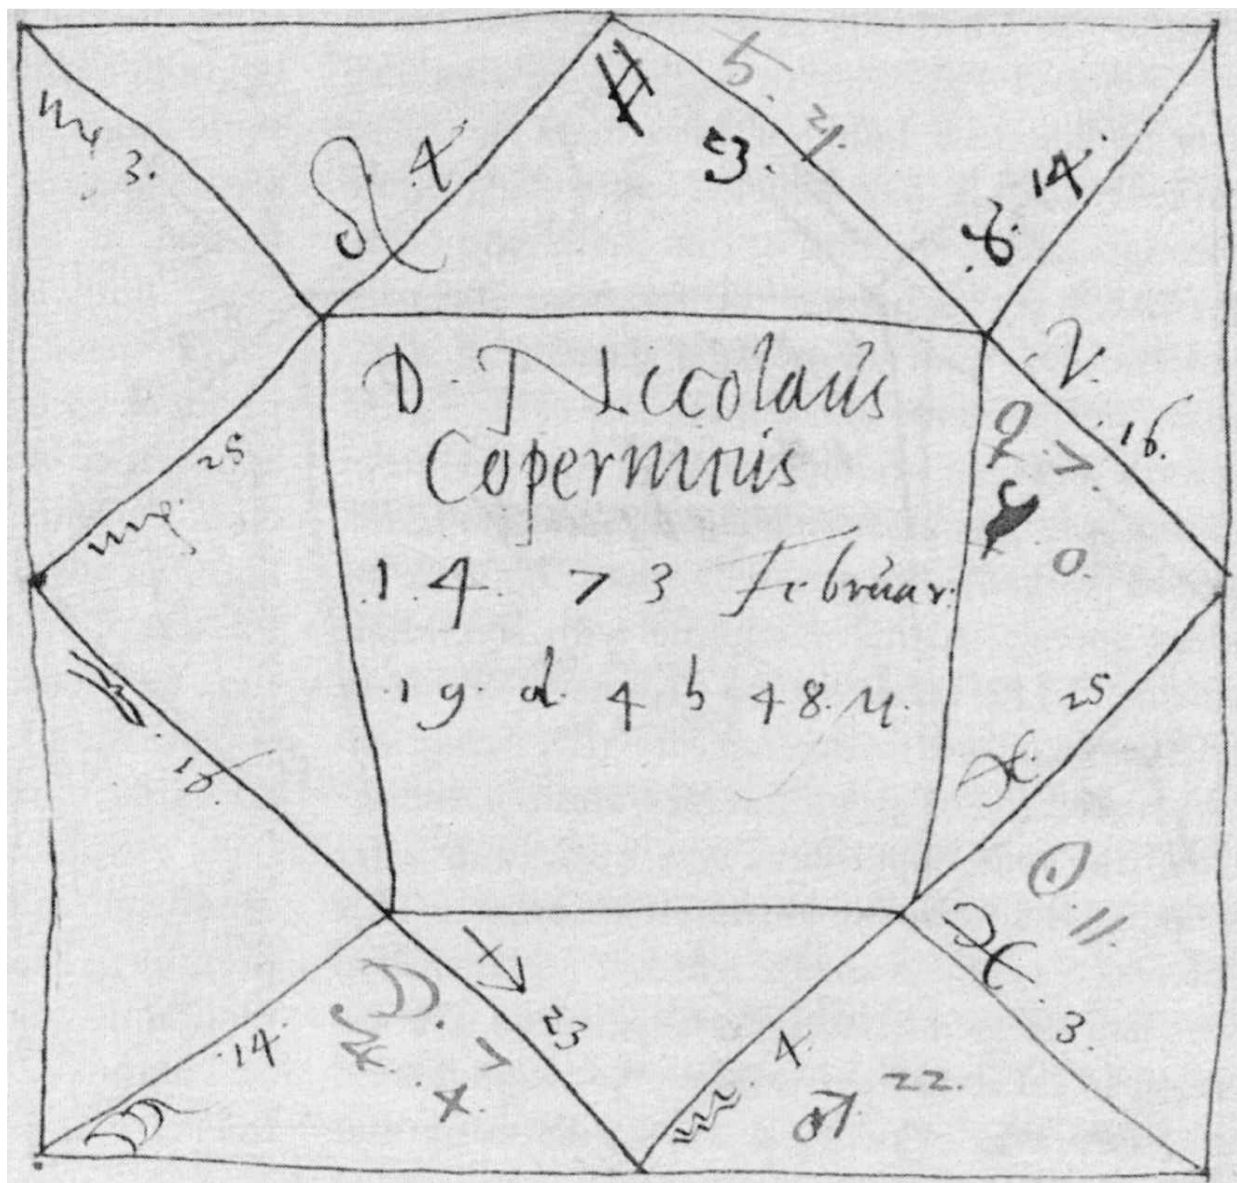 ♍ 3.
♌ 4
♊ 23.
♄. 21.
♉. 14.
♈. 16.
♍. 25
D. Nicolaus
Copernicus
♀ 7.
☿ 0.
1473 Februar.
19. d. 4 h 48. M.
16.
♓. 25
☉ 11
♓. 3.
♐ 23
☽. 7
4.
14.
♏ 4.
♂ 22.